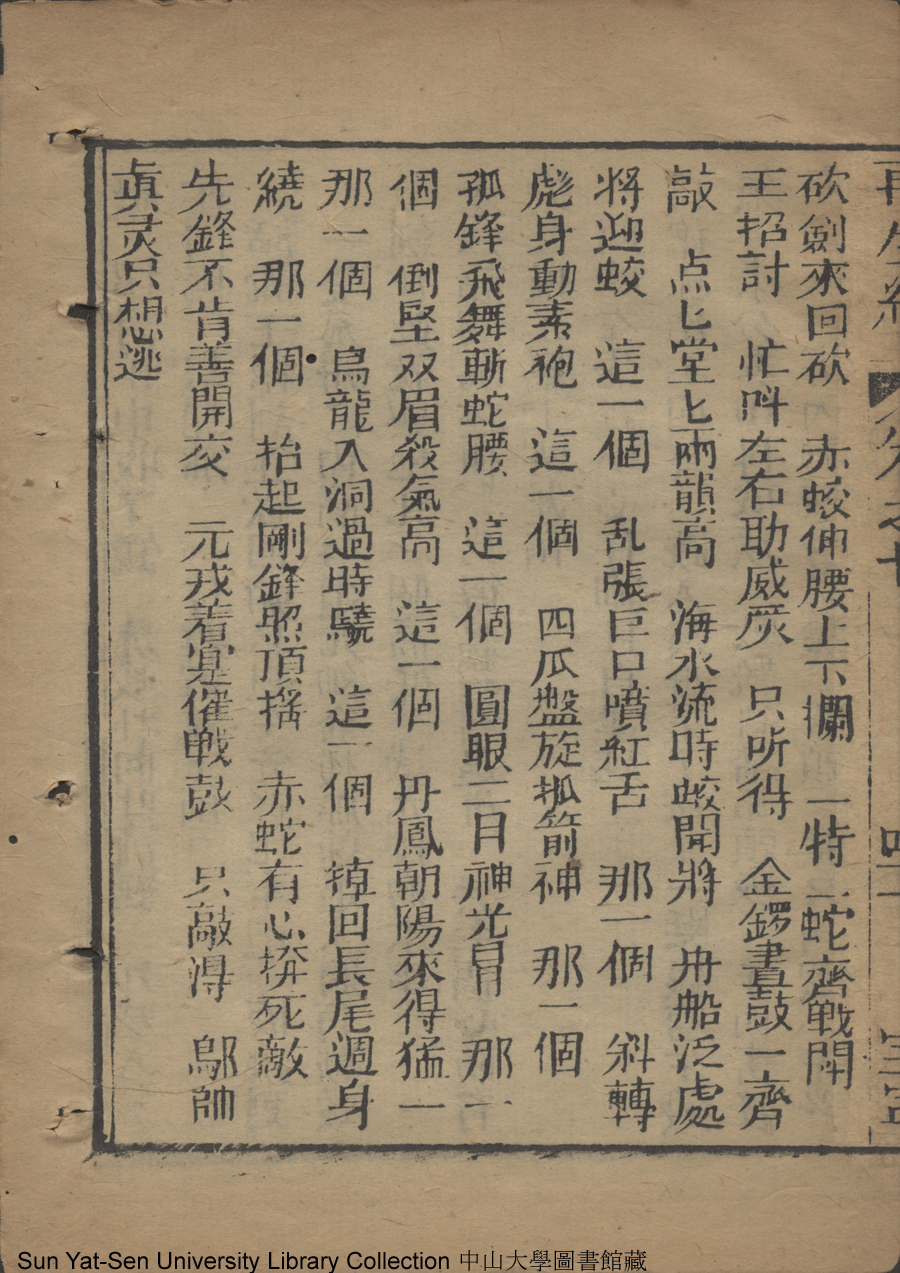 再生緣 卷之十
砍劍來回砍 赤蛟伸腰上下攔 一特二蛇齊戰閗
王招討 忙呌左右助威灰 只听得 金鑼晝鼓一齊
敲 点匕堂匕兩韻高 海水流時蛟聞將 舟船泛處
將迎蛟 這一個 乱張巨口噴紅舌 那一個 斜轉
彪身動素袍 這一個 四瓜盤旋抓箭神 那一個
孤鋒飛舞斬蛇腰 這一個 圓眼二目神光冐 那一
個 倒坚双眉殺氣高 這一個 丹鳳朝陽來得猛 一
那一個 烏龍入洞過時驍 這一個 掉回長尾週身
繞 那一個 抬起剛鋒照頂搖 赤蛇有心拚死敵
先鋒不肯善開交 元戎着寔催戰鼓 只敲淂 鄔帥
眞灵只想逃
Sun Yat-Sen University Library Collection 中山大學圖書館藏